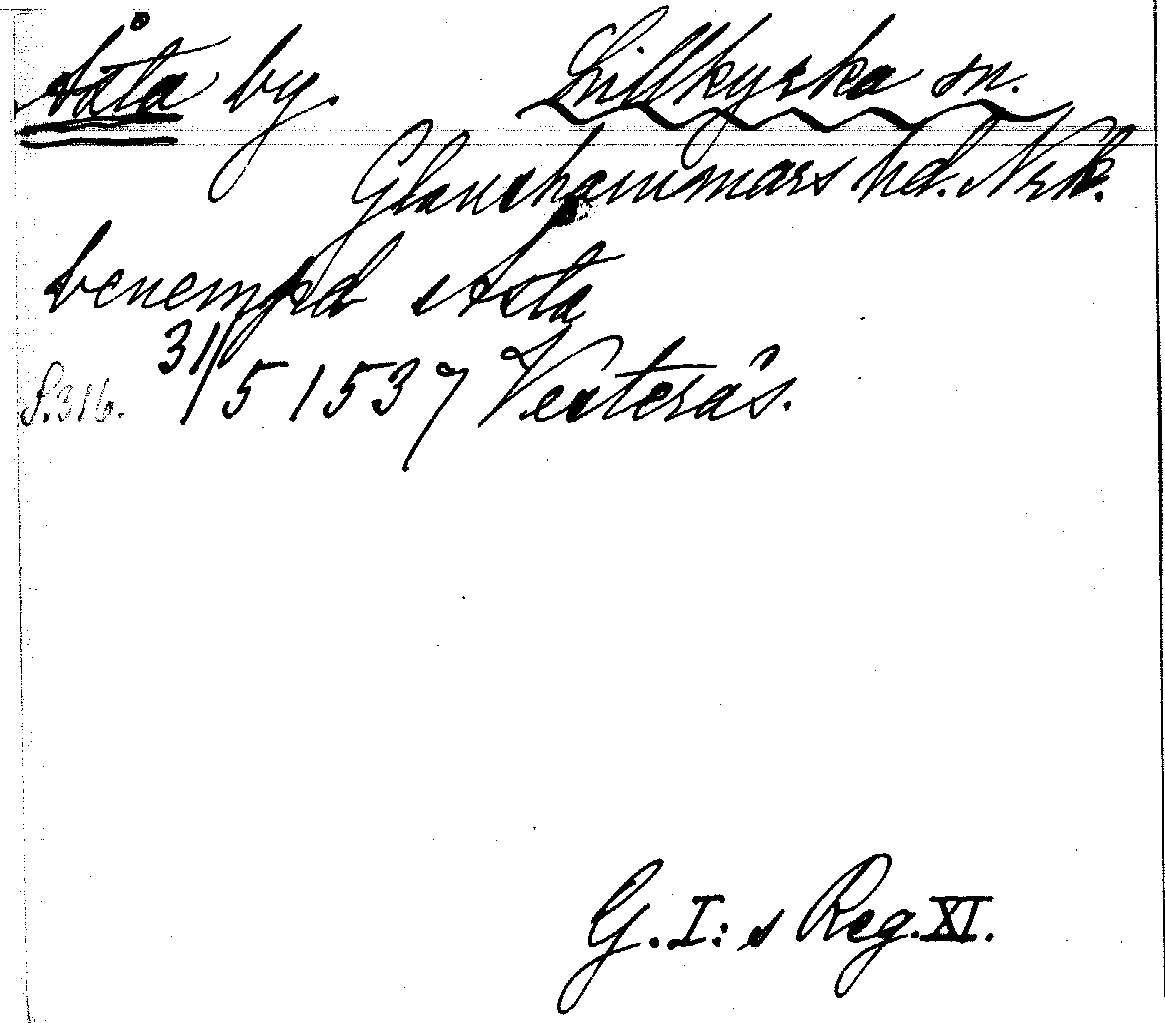 Åsta by. Lillkyrka sn.
Glanshammars hd. Nrk.
benempd Asta
S. 316. 31/5 1537 Vesterås.
G. I:s Reg. XI.